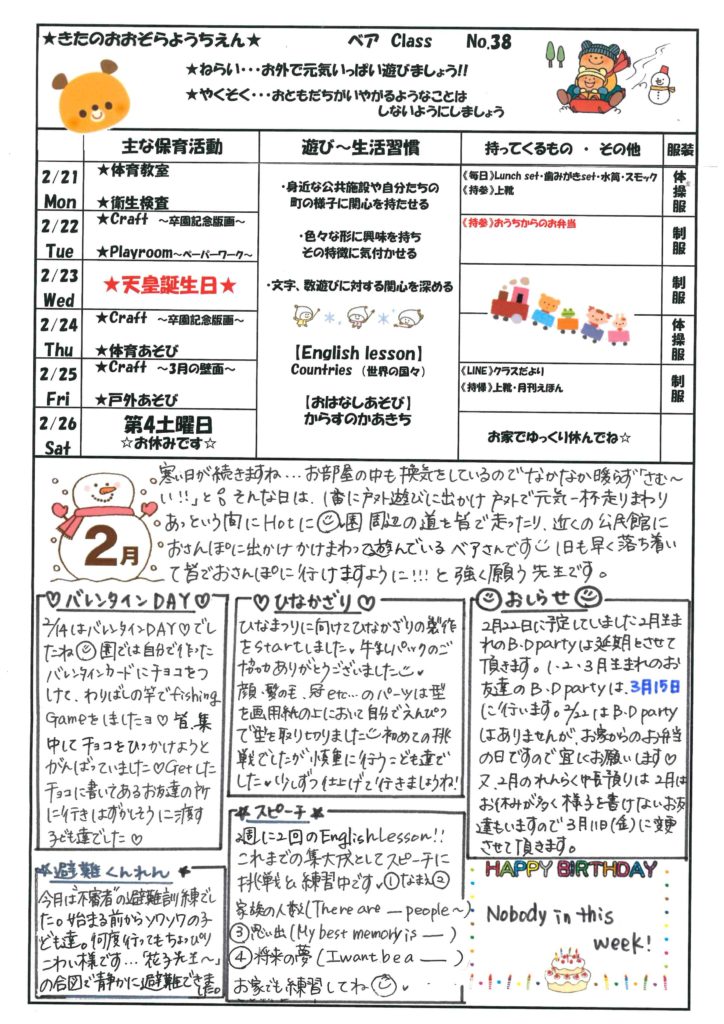 ★きたのおおぞらようちえん★　ベア Class　No.38
★ねらい・・・お外で元気いっぱい遊びましょう!!
★やくそく・・・おともだちがいやがるようなことは
しないようにしましょう
主な保育活動　遊び～生活習慣　持ってくるもの ・ その他　服装
2/21 Mon
★体育教室
★衛生検査
《毎日》Lunch set・歯みがきset・水筒・スモック
《持参》上靴
体操服
2/22 Tue
★Craft ～卒園記念版画～
★Playroom～ペーパーワーク～
《持参》おうちからのお弁当
制服
2/23 Wed
★天皇誕生日★
制服
2/24 Thu
★Craft ～卒園記念版画～
★体育あそび
体操服
2/25 Fri
★Craft ～3月の壁面～
★戸外あそび
《LINE》クラスだより
《持帰》上靴・月刊えほん
制服
2/26 Sat
第4土曜日
☆お休みです☆
お家でゆっくり休んでね☆
・身近な公共施設や自分たちの
町の様子に関心を持たせる
・色々な形に興味を持ち
その特徴に気付かせる
・文字、数遊びに対する関心を深める
【English lesson】
Countries （世界の国々）
【おはなしあそび】
からすのかあきち
2月
寒い日が続きますね… お部屋の中も換気をしているのでなかなか暖らず「さむ～
い!!」と。そんな日は、1番に戸外遊びに出かけ戸外で元気一杯走りまわり
あっという間にHotに 園周辺の道を皆で走ったり、近くの公民館に
おさんぽに出かけかけまわって遊んでいるベアさんです 1日も早く落ち着い
て皆でおさんぽに行けますように!!! と強く願う先生です。
♡バレンタインDAY♡
2/14はバレンタインDAY♡でし
たね 園では自分で作った
バレンタインカードにチョコをつ
けて、わりばしの竿でfishing
Gameをしましたョ♡ 皆、集
中してチョコをひっかけようと
がんばっていました♡Getした
チョコに書いてあるお友達の所
に行きはずかしそうに渡す
子ども達でした♡
♡ひなかざり♡
ひなまつりに向けてひなかざりの製作
をstartしました。牛乳パックのご
協力ありがとうございました
顔・髪の毛、冠etc…のパーツは型
を画用紙の上において自分でえんぴつ
で型を取り切りました 初めての挑
戦でしたが慎重に行うこども達で
した 少しずつ仕上げて行きましょうね!
おしらせ
2月22日に予定していました2月生ま
れのB・D partyは延期とさせて
頂きます。1・2・3月生まれのお
友達のB・D partyは、3月15日
に行います。2/22はB・D party
はありませんが、お家からのお弁当
の日ですので宜しくお願いします♡
又、2月のれんらく帳預りは2月は
お休みが多く様子を書けないお友
達もいますので3月11日(金)に変更
させて頂きます。
★避難くんれん★
今月は"不審者"の避難訓練でし
た。始まる前からソワソワの子
ども達。何度行ってもちょっぴり
こわい様です…「花子先生～」
の合図で静かに避難できました。
★スピーチ★
2週に2回のEnglish Lesson!!
これまでの集大成としてスピーチに
挑戦＆練習中です。①なまえ②
家族の人数(There are ― people～)
③思い出(My best memory is ―)
④将来の夢(I want be a ―)
お家でも練習してね
HAPPY BIRTHDAY
Nobody in this
week!